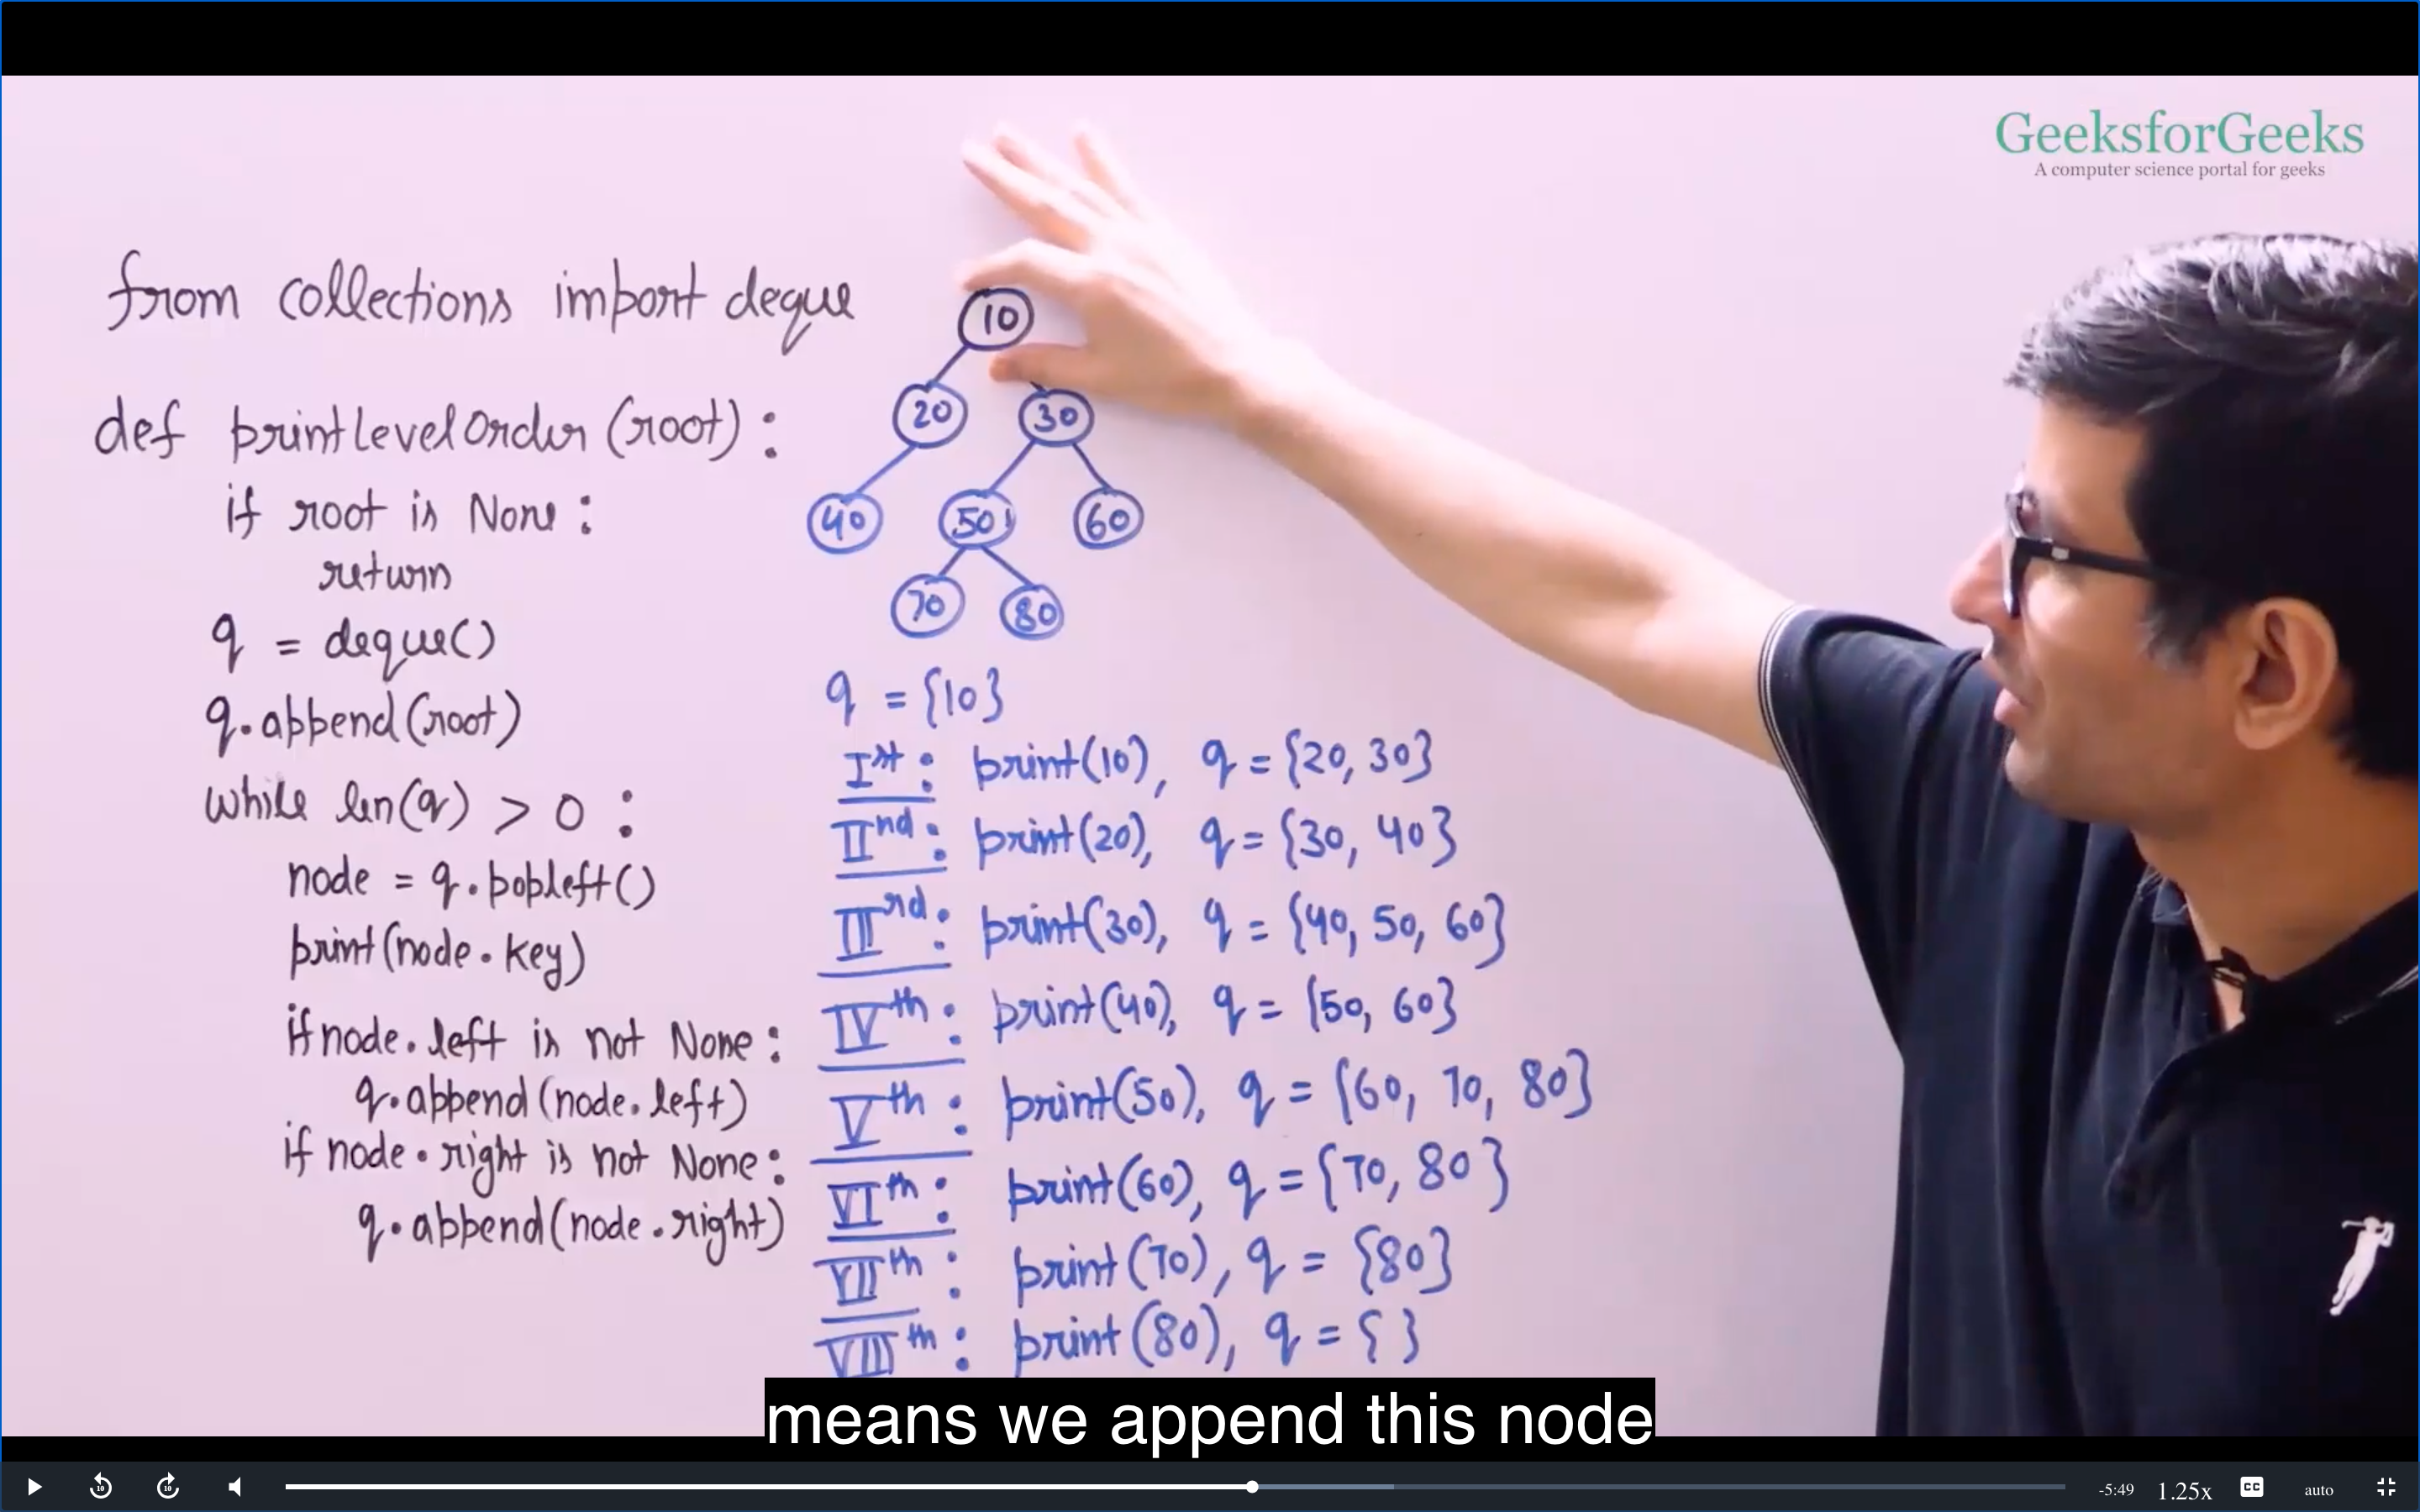 GeeksforGeeks
A computer science portal for geeks
from collections import deque
def printLevelOrder(root):
if root is None:
return
q = deque()
q.append(root)
while len(q) > 0 :
node = q.popleft()
print(node.key)
if node.left is not None:
q.append(node.left)
if node.right is not None:
q.append(node.right)
10
20 30
40 50 60
70 80
q = {10}
Ist: print(10), q = {20, 30}
IInd: print(20), q = {30, 40}
IIIrd: print(30), q = {40, 50, 60}
IVth: print(40), q = {50, 60}
Vth: print(50), q = {60, 70, 80}
VIth: print(60), q = {70, 80}
VIIth: print(70), q = {80}
VIIIth: print(80), q = { }
means we append this node
10 10 -5:49 1.25x CC auto